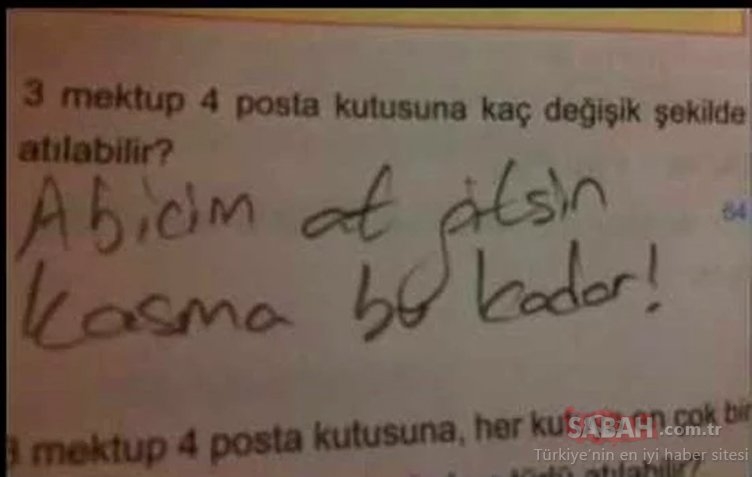 3 mektup 4 posta kutusuna kaç değişik şekilde
atılabilir?
64
Abicim at gitsin
kasma bu kadar!
mektup 4 posta kutusuna, her en çok bir
SABAH.com.tr
Türkiye'nin en iyi haber sitesi
atılabilir?